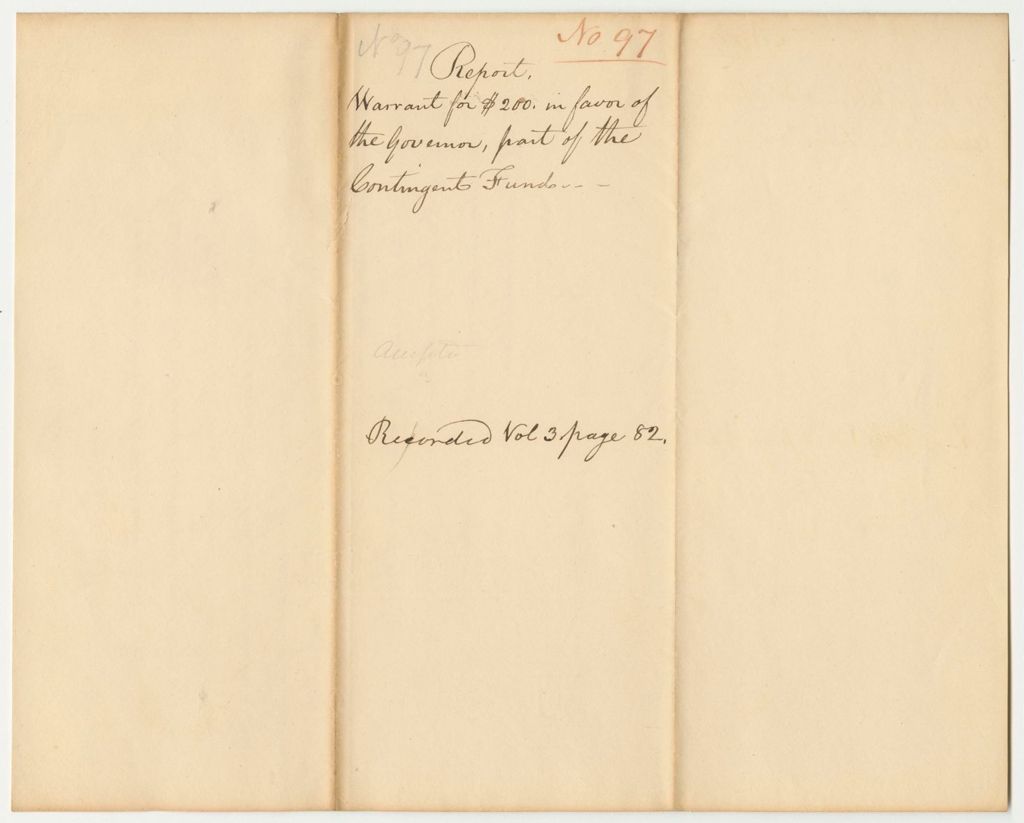 No 97
No 97
Report.
Warrant for $200. in favor of
the Governor, part of the
Contingent Fund. - -
Recorded Vol 3 page 82.